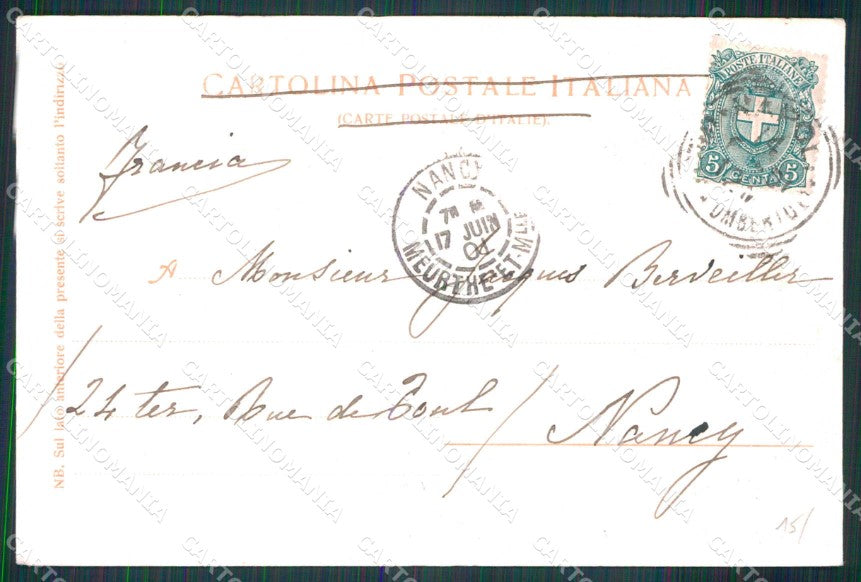 CARTOLINA POSTALE ITALIANA
(CARTE POSTALE D'ITALIE).
POSTE ITALIANE
5 CENT. 5
Francia
NANCY
17 JUIN
04
MEURTHE-ET-MLLE
A Monsieur Jacques Berveiller
24 ter, Rue de Toul
Nancy
NB. Sul lato anteriore della presente si scrive soltanto l'indirizzo
15/
CARTOLINOMANIA